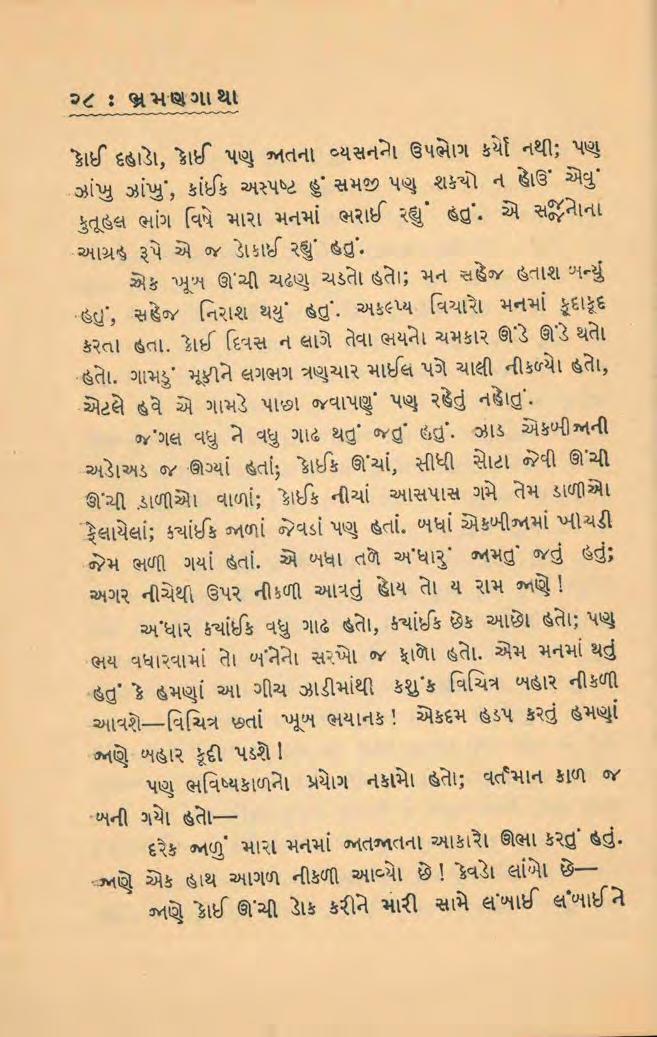 ૨૮ : ભ્રમણગાથા
કોઈ દહાડો, કોઈ પણ જાતના વ્યસનનો ઉપભોગ કર્યો નથી; પણ
ઝાંખુ ઝાંખું, કાંઈક અસ્પષ્ટ હું સમજી પણ શકયો ન હોઉં એવું
કુતૂહલ ભાંગ વિષે મારા મનમાં ભરાઈ રહ્યું હતું. એ સર્જૂનોના
આગ્રહ રૂપે એ જ ડોકાઈ રહ્યું હતું.
એક ખૂબ ઊંચી ચઢણ ચડતો હતો; મન સહેજ હતાશ બન્યું
હતું, સહેજ નિરાશ થયું હતું. અકલ્પ્ય વિચારો મનમાં કૂદાકૂદ
કરતા હતા. કોઈ દિવસ ન લાગે તેવા ભયનો ચમકાર ઊંડે ઊંડે થતો
હતો. ગામડું મૂકીને લગભગ ત્રણચાર માઈલ પગે ચાલી નીકળ્યો હતો,
એટલે હવે એ ગામડે પાછા જવાપણું પણ રહેતું નહોતું.
જંગલ વધુ ને વધુ ગાઢ થતું જતું હતું. ઝાડ એકબીજાની
અડોઅડ જ ઊગ્યાં હતાં; કોઈક ઊંચાં, સીધી સોટા જેવી ઊંચી
ઊંચી ડાળીઓ વાળાં; કોઈક નીચાં આસપાસ ગમે તેમ ડાળીઓ
ફેલાયેલાં; કયાંઈક જાળાં જેવડાં પણ હતાં. બધાં એકબીજામાં ખીચડી
જેમ ભળી ગયાં હતાં. એ બધા તળે અંધારું જામતું જતું હતું;
અગર નીચેથી ઉપર નીકળી આવતું હોય તો ય રામ જાણે !
અંધાર કયાંઈક વધુ ગાઢ હતો, કયાંઈક છેક આછો હતો; પણ
ભય વધારવામાં તો બંનેનો સરખો જ ફાળો હતો. એમ મનમાં થતું
હતું કે હમણાં આ ગીચ ઝાડીમાંથી કશુંક વિચિત્ર બહાર નીકળી
આવશે—વિચિત્ર છતાં ખૂબ ભયાનક ! એકદમ હડપ કરતું હમણાં
જાણે બહાર કૂદી પડશે !
પણ ભવિષ્યકાળનો પ્રયોગ નકામો હતો; વર્તમાન કાળ જ
બની ગયો હતો—
દરેક જાળું મારા મનમાં જાતજાતના આકારો ઊભા કરતું હતું.
જાણે એક હાથ આગળ નીકળી આવ્યો છે ! કેવડો લાંબો છે—
જાણે કોઈ ઊંચી ડોક કરીને મારી સામે લંબાઈ લંબાઈને